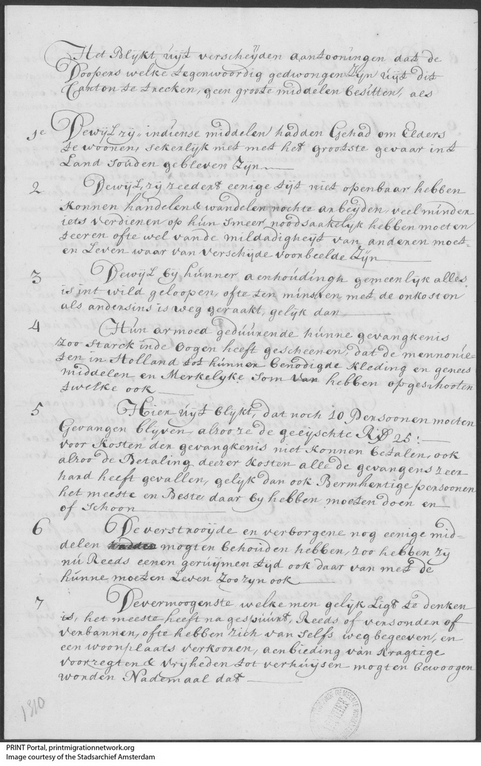 Het Blykt uyt verscheyden aantooningen dat de
Doopers welke tegenwoordig gedwongen Zyn uyt dit
Canton te trecken, geen groote middelen besitten, als
1e Dewyl zy indiense middelen hadden Gehad om Elders
te woonen, sekerlyk niet met het grootste gevaar int
Land souden gebleven Zyn
2 Dewyl zy zeedert eenige tyt niet openbaar hebben
konnen handelen & wandelen nochte arbeyden veel minder
iets verdienen op hun smeer noodsaakelyk hebben moeten
teeren ofte wel van de mildadigheyt van anderen moet-
en Leven waar van verschyde voorbeelde Zyn
3 Dewyl by hunner aenhoudingh gemeenlyk alles
is int wild geloopen, ofte ten minsten met de onkosten
als andersins is weg geraakt, gelyk dan
4 Hun armoed geduurende hunne gevangkenis
zoo starck inde oogen heeft gescheenen, dat de mennonie-
ten in Holland tot hunner benodigde kleding en genees
middelen een Merkelyke Som van hebben opgeschooten
twelke ook
5 Hier uyt blykt, dat noch 10 Persoonen moeten
Gevangen blyven alzoo ze de geeyschte R 25:
voor kosten der gevangkenis niet konnen betalen, ook
alzoo de Betaling deezer kosten alle de gevangens zeer
hard heeft gevallen, gelyk dan ook Bermhertige persoonen
het meeste en Beste daar by hebben moeten doen en
of Schoon
6 De verstrooyde en verborgene nog eenige mid-
delen mogten behouden hebben, zoo hebben zy
nu Reeds eenen geruymen tyd ook daar van met de
hunne moeten Leven zoo zyn ook
7 De vermoogenste welke men gelyk Ligt te denken
is, het meeste heeft nagespuurt, Reeds of versonden of
verbannen, ofte hebben zich van selfs weg begeven, en
een woonplaats verkooren, aenbieding van kragtige
voorzegten & vryheden tot verhuysen mogten bewoogen
worden Nademaal dat
1310
PRINT Portal, printmigrationnetwork.org
Image courtesy of the Stadsarchief Amsterdam